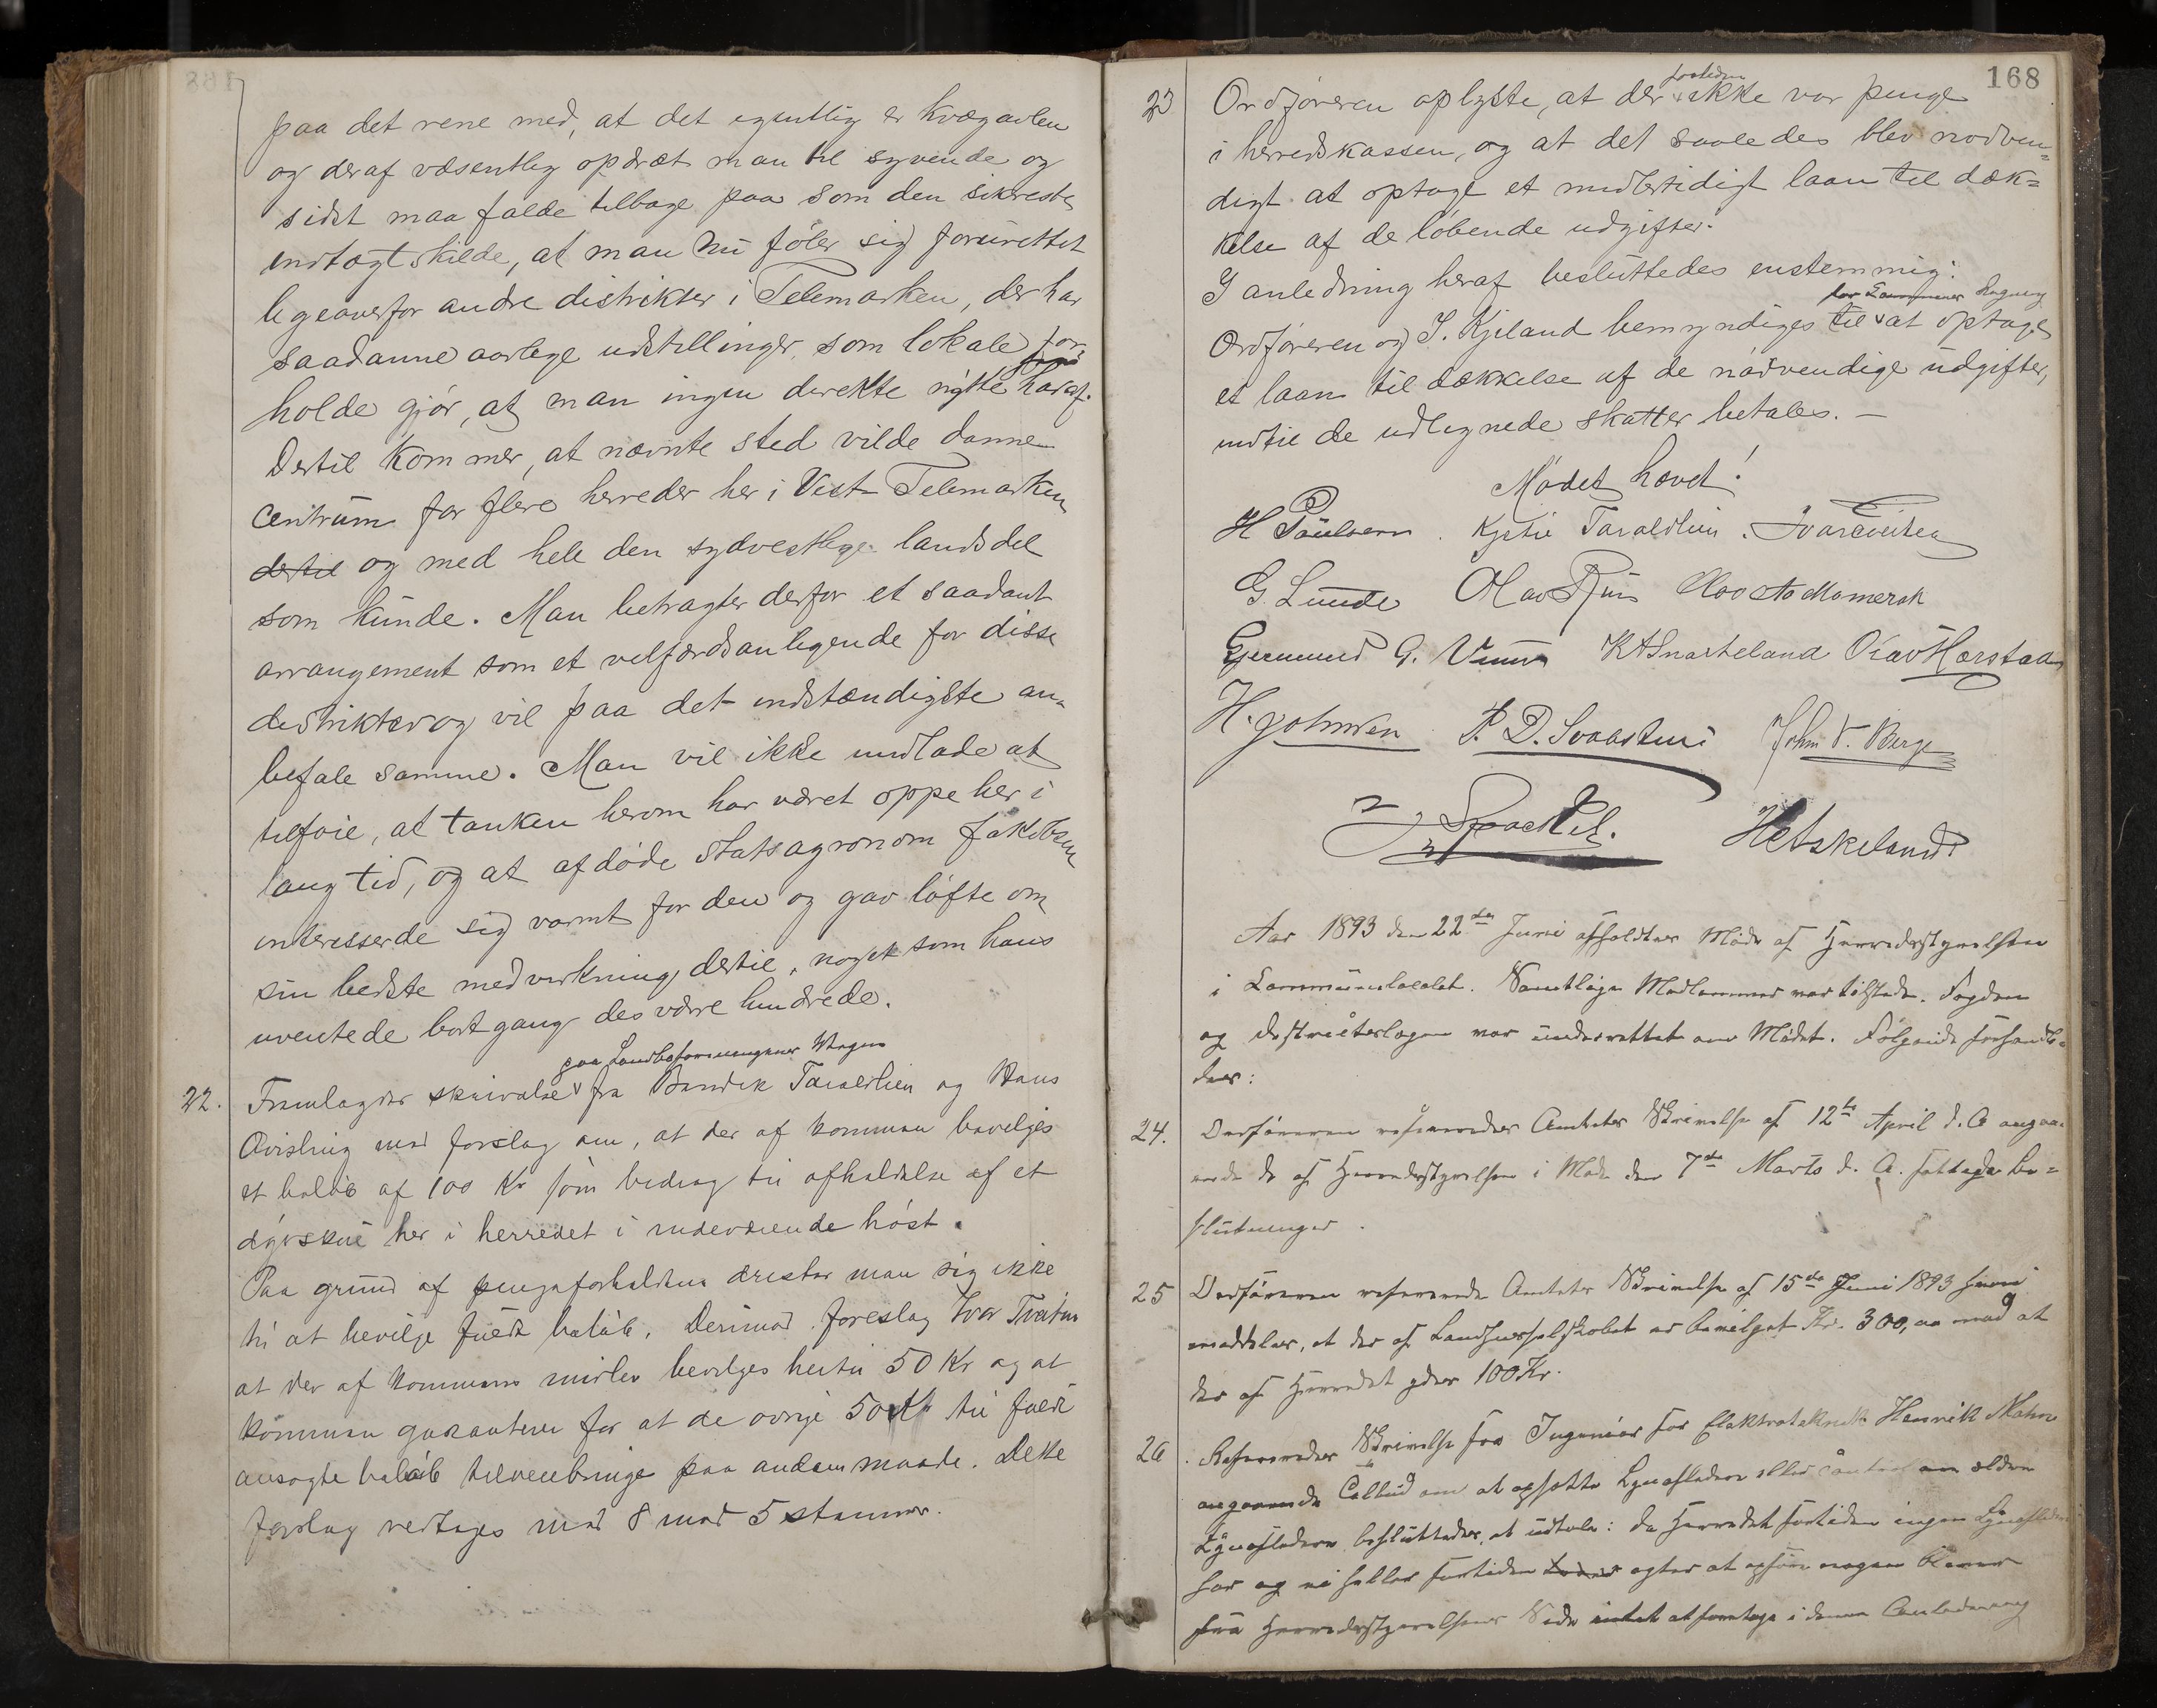 paa det rene med, at det egentlig er kvægavlen
og deraf væsentlig opdræt man til syvende og
sidst maa falde tilbage paa som den sikreste
indtægtskilde, at man nu føler sig forurettet
ligeoverfor andre distrikter i Telemarken, der har
saadanne aarlige udstillinger, som lokale for-
holde gjør, at man ingen direkte nytte har af.
Dertil kommer, at nævnte sted vilde danne
centrum for flere herreder her i Vest-Telemarken
dertil og med hele den sydvestlige landsdel
som kunde. Man betragter derfor et saadant
arrangement som et velfærdsanligende for disse
distrikter og vil paa det indstændigste an-
befale samme. Man vil ikke undlade at
tilføie, at tanken herom har været oppe her i
lang tid, og at afdøde statsagronom Jakobsen
interesserede sig varmt for den og gav løfte om
sin bedste medvirkning dertil, noget som hans
uventede bortgang desværre hindrede.
paa Landboforeningens Vegne
22. Fremlagdes skrivelse fra Bendik Taraldlien og Hans
Kvisling med forslag om, at der af kommunen bevilges
et beløb af 100 Kr som bidrag til afholdelse af et
dyrskue her i herredet i indeværende høst.
Paa grund af pengeforholdene drister man sig ikke
til at bevilge fuldt beløb. Derimod foreslog Ivar Tveiten
at der af kommunen bevilges hertil 50 Kr og at
kommunen garanterer for at de øvrige 50 Kr til fuldt
ansøgte beløb tilveiebringes paa anden maade. Dette
forslag vedtages med 8 mod 5 stemmer.
168
23 Ordføreren oplyste, at der fortiden ikke var penge
i herredskassen, og at det saaledes blev nødven-
digt at optage et midlertidigt laan til dæk-
kelse af de løbende udgifter.
I anledning heraf besluttedes enstemmig:
for Kommunens Regning
Ordføreren og S. Kjeland bemyndiges til at optage
et laan til dækkelse af de nødvendige udgifter,
indtil de udlignede skatter betales. –
Mødet hævet!
H Paulsen. Kjetil Taraldlien. Ivar Tveiten
G. Lunde Olav Olav
Gjermund G. K A Snarteland Olav Harstad
H. Johnsen P. D. John V. Berge
H A Skeland
Aar 1893 den 22de Juni afholdtes Møde af Herredsstyrelsen
i Kommunelocalet. Samtlige Medlemmer var tilstede. Fogden
og Distriktslægen var underrettet om Mødet. Følgende forhandle-
des:
24. Ordføreren refererede Amtets Skrivelse af 12te April d. A angaa-
ende de af Herredsstyrelsen i Møde den 7de Marts d. A. fattede Be-
slutninger.
25 Ordføreren refererede Amtets Skrivelse af 15de Juni 1893 hvori
meddeles, at der af Landhusselskabet er bevilget Kr. 300,00 mod at
der af Herredet ydes 100 Kr.
26. Refereredes Skrivelse fra Ingeniør for Elektroteknik Henrik
angaaende Tilbud om at opsætte Lynafledere eller ældre
Lynafledere besluttedes at udtale: Da Herredet fortiden ingen Lynafledere
har og ei heller fortiden agter at opføre nogen bliver
fra Herredsstyrelsens Side intet at foretage i denne Anledning